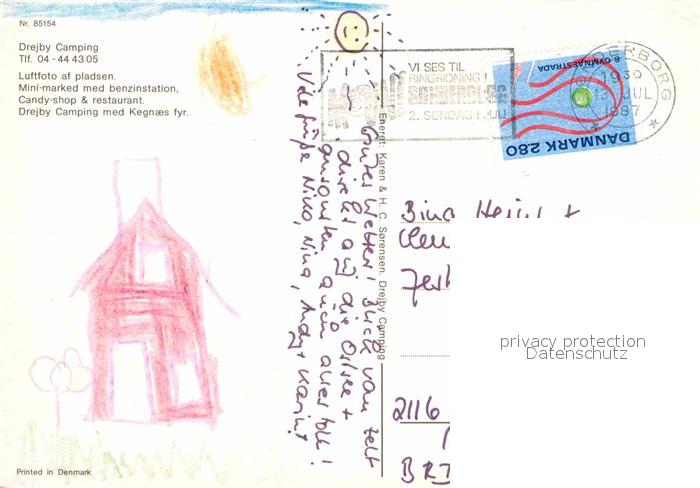 Nr. 85154
Drejby Camping
Tlf. 04 - 44 43 05
Luftfoto af pladsen.
Mini-marked med benzinstation,
Candy-shop & restaurant.
Drejby Camping med Kegnæs fyr.
Printed in Denmark
Eneret: Karen & H. C. Sørensen. Drejby Camping
VI SES TIL
RINGRIDNING I
SØNDERBORG
2. SØNDAG I JULI
SØNDERBORG
1987
8. GYMNAESTRADA
DANMARK 2.80
Gutes Wetter, Blick vom Zelt
direkt auf die Ostsee +
ansonsten auch alles toll!
Viele Grüße Nico, Nina, Andy + Karin!
2116
privacy protection
Datenschutz